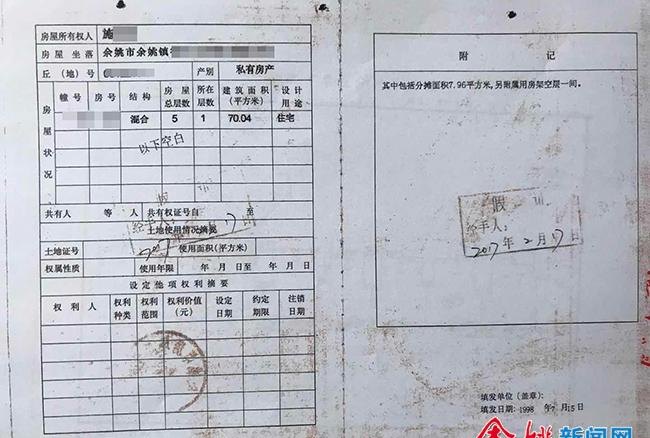 房屋所有权人 施
房屋坐落 余姚市余姚镇
丘（地）号 产别 私有房产
房屋状况
幢号 房号 结构 房屋总层数 所在层数 建筑面积（平方米） 设计用途
混合 5 1 70.04 住宅
以下空白
共有人 等 人 共有权证号自 至
土地使用情况摘要
土地证号 使用面积（平方米）
权属性质 使用年限 年 月 日至 年 月 日
设定他项权利摘要
权利人 权利种类 权利范围 权利价值（元） 设定日期 约定期限 注销日期
经手人：
2017
附 记
其中包括分摊面积7.96平方米，另附属用房架空层一间。
假
经手人：
2017年2月17日
填发单位（盖章）：
填发日期：1998 年7 月15日
余姚新闻网